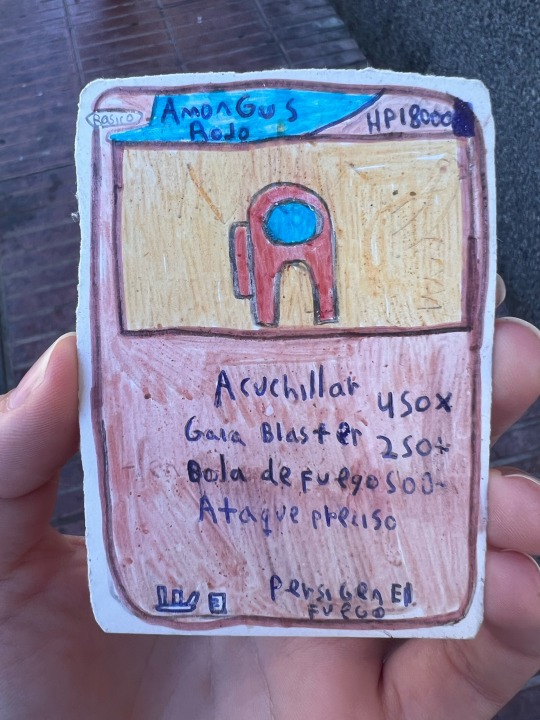 BASICO
AmonGus
Rojo
HP18000
Acuchillar 450x
Gaia Blaster 250+
Bola de Fuego 500-
Ataque preciso
PersiGen El
FUEGO